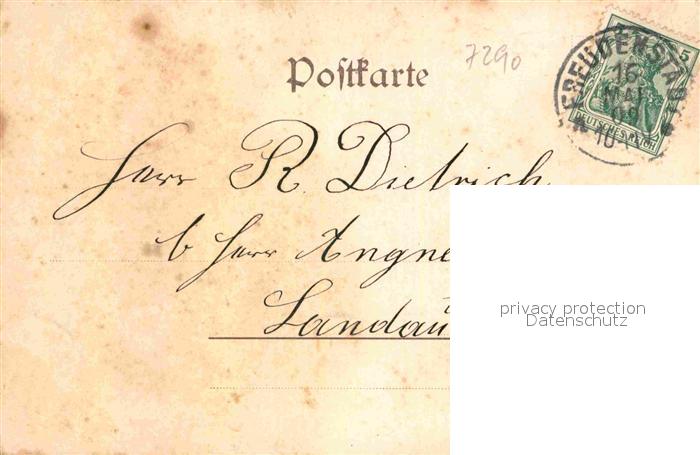 7290
Postkarte
5
FREUDENSTADT
16
MAI
DEUTSCHES REICH
Herr R. Dietrich
b Herr
Landau
privacy protection
Datenschutz